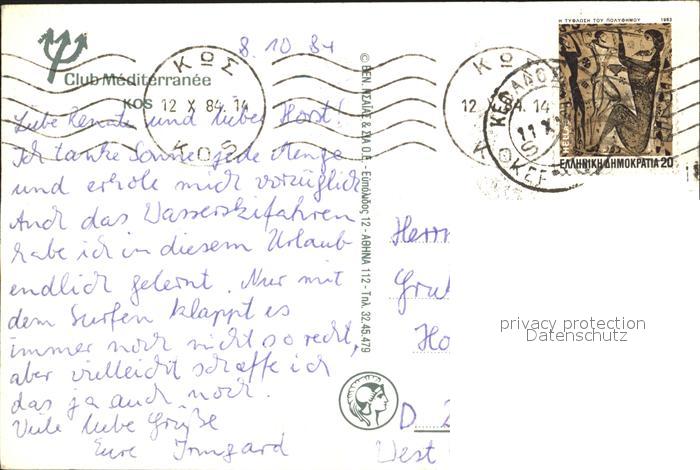 8.10.84
Club Méditerranée
KOS
Liebe Renate und lieber Horst!
Ich tanke Sonne jede Menge
und erhole mich vorzüglich
Auch das Wasserskifahren
habe ich in diesem Urlaub
endlich gelernt. Nur mit
dem Surfen klappt es
immer noch nicht so recht,
aber vielleicht schaffe ich
das ja auch noch.
Viele liebe Grüße
Eure Irmgard
ΚΩΣ
12 X 84. 14
ΚΩΣ
© BEN. ΝΖΑΪΑΣ & ΣΙΑ Ο.Ε. - Ευπόλιδος 12 - ΑΘΗΝΑ 112 - Τηλ. 32.45.479
ΚΩ
12 X 84. 14
Κ
11 X
Η ΤΥΦΛΩΣΗ ΤΟΥ ΠΟΛΥΦΗΜΟΥ 1983
HELLAS
ΕΛΛΗΝΙΚΗ ΔΗΜΟΚΡΑΤΙΑ 20
Herrn
Ho
D
West
privacy protection
Datenschutz